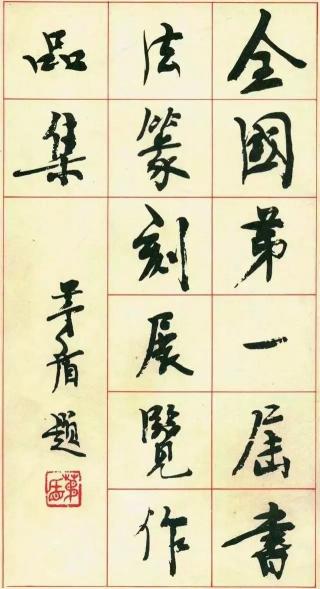 全國第一屆書
法篆刻展覽作
品集
茅盾題
茅盾